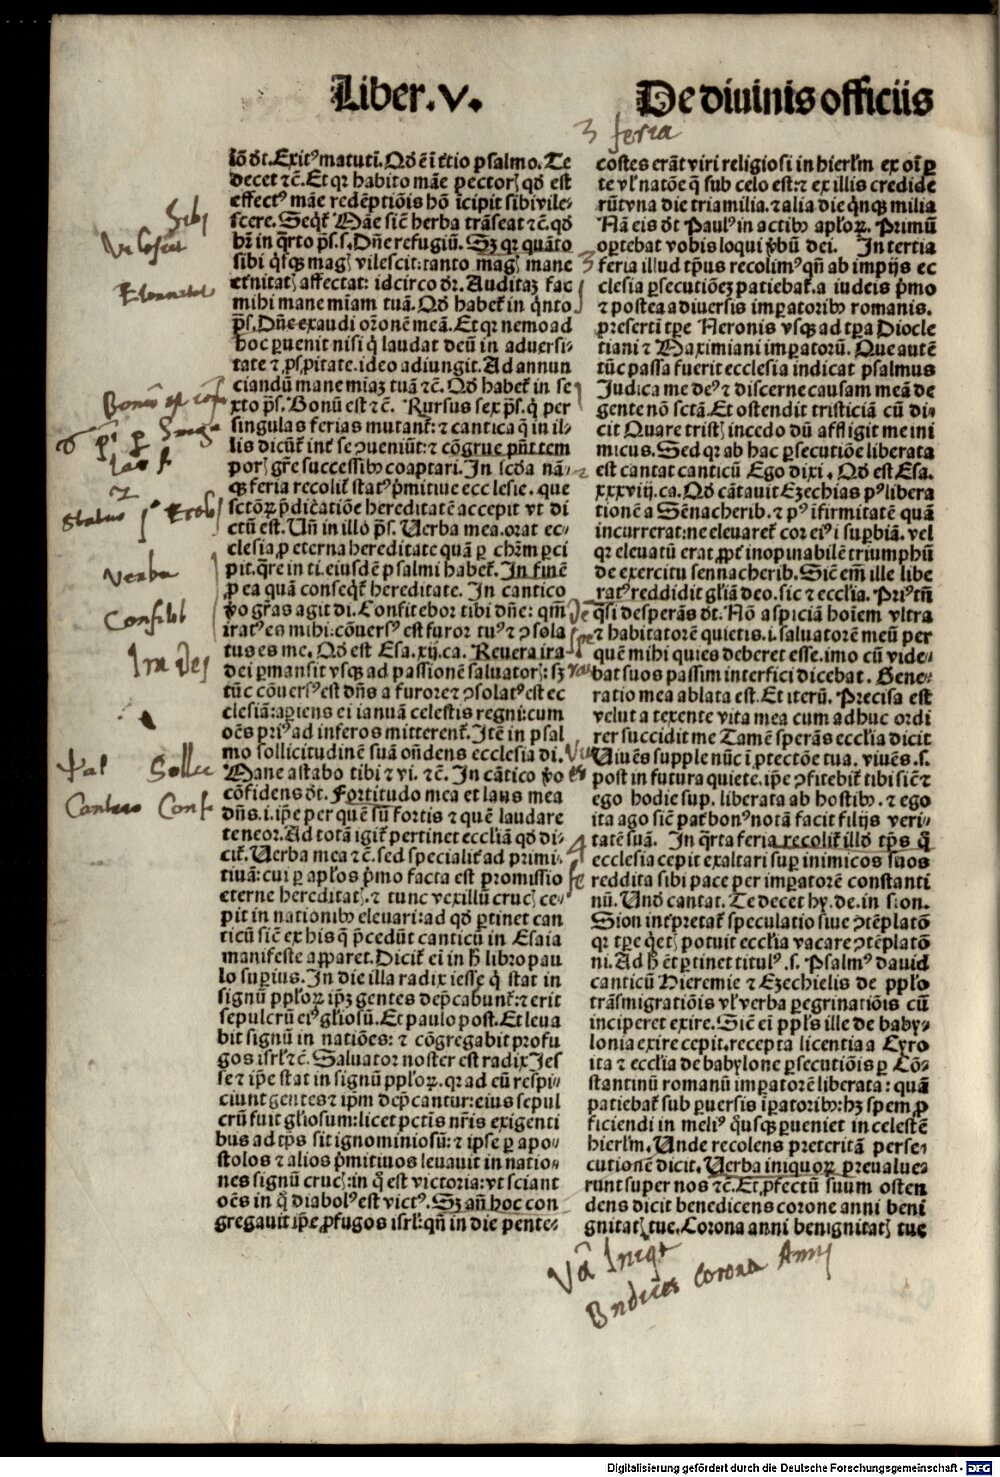 Liber.v.
De diuinis officiis
3 feria
iō d̄t. Exitꝰ matuti. Qd̄ ē ī t̄tio psalmo. Te
decet ⁊c̄. Et qꝛ habito māe ꝑectorꝭ qd̄ est
effectꝰ māe redēptiōis hō īcipit sibi vile⸗
scere. Seqt̄ Māe sic̄ herba trāseat ⁊c̄. qd̄
hr̄ in q̄rto ps̄. s. Dn̄e refugiū. Sꝫ qꝛ quāto
sibi q̄sqꝫ magꝭ vilescit: tanto magꝭ mane
et̄nitatꝭ affectat: idcirco dr̄. Auditaꝫ fac
mihi mane mīam tuā. Qd̄ habet̄ in q̄nto
ps̄. Dn̄e exaudi or̄onē meā. Et qꝛ nemo ad
hoc ꝑuenit nisi q̄ laudat deū in aduersi⸗
tate ⁊ ꝓspitate. ideo adiungit. Ad annun
ciandū mane miaꝫ tuā ⁊c̄. Qd̄ habet̄ in se
xto ps̄. Bonū est ⁊c̄. Rursus sex ps̄. q̄ per
singulas ferias mutant̄: ⁊ cantica q̄ in il⸗
lis dicūt̄ int̄ se ꝯueniūt: ⁊ cōgrue pn̄t tem
porꝭ gr̄e successiōi coaptari. In scd̄a nā⸗
qꝫ feria recolit̄ statꝰ p̄mitiue ecclesie. que
sctōꝝ p̄dicatiōe hereditatē accepit vt di
ctū est. Un̄ in illo ps̄. Uerba mea. orat ec⸗
clesia ꝓ eterna hereditate quā ꝑ chr̄m ꝑci
pit. q̄re in ti. eiusdē psalmi habet̄. In finē
ꝓ ea quā conseqt̄ hereditate. In cantico
v̄o gr̄as agit di. Confitebor tibi dn̄e: qm̄
iratꝰ es mihi: cōuersꝰ est furor tuꝰ ⁊ ꝯsola
tus es me. Qd̄ est Esa. xij. ca. Reuera ira
dei ꝑmansit vsqꝫ ad passionē saluatorꝭ: sꝫ
tūc cōuersꝰ est dn̄s a furore ⁊ ꝯsolatꝰ est ec
clesiā: aꝑiens ei ianuā celestis regni: cum
oēs priꝰ ad inferos mitterent̄. Itē in psal
mo sollicitudinē suā on̄dens ecclesia di.
Mane astabo tibi ⁊ vi. ⁊c̄. In cātico v̄o
cōfidens d̄t. Fortitudo mea et laus mea
dn̄s. i. ip̄e per quē sū fortis ⁊ quē laudare
teneor. Ad totā igit̄ pertinet eccliā qd̄ di⸗
cit̄. Uerba mea ⁊c̄. sed specialit̄ ad primi⸗
tiuā: cui ꝑ apl̄os p̄mo facta est promissio
eterne hereditatꝭ. ⁊ tunc vexillū crucꝭ ce⸗
pit in nationibꝫ eleuari: ad qd̄ ꝑtinet can
ticū sic̄ ex his q̄ p̄cedūt canticū in Esaia
manifeste apparet. Dicit̄ ei in h̄ libro pau
lo superius. In die illa radix iesse q̄ stat in
signū pplōꝝ ip̄ꝫ gentes dep̄cabunt̄: ⁊ erit
sepulcrū eiꝰ gl̄iosū. Et paulo post. Et leua
bit signū in natiōes: ⁊ cōgregabit profu
gos isrl̄ ⁊c̄. Saluator noster est radix Jes
se ⁊ ip̄e stat in signū pplōꝝ. qꝛ ad eū respi⸗
ciunt gentes ⁊ ip̄m dep̄cantur: eius sepul
crū fuit gl̄iosum: licet pctīs nr̄is exigenti
bus ad tp̄s sit ignominiosū: ⁊ ipse ꝑ apo⸗
stolos ⁊ alios p̄mitiuos leuauit in natio⸗
nes signū crucꝭ: in q̄ est victoria: vt sciant
oēs in q̄ diabolꝰ est victꝰ. Sꝫ an̄ hoc con
gregauit ip̄e ꝓfugos isrl̄: qn̄ in die pente⸗
costes erāt viri religiosi in hierl̄m ex oī ꝑ
te vl̓ natōe q̄ sub celo est: ⁊ ex illis credide
rūt vna die tria milia. ⁊ alia die q̄nqꝫ milia
Nā eis d̄t Paulꝰ in actibꝫ apl̄oꝝ. Primū
oꝑtebat vobis loqui v̄bū dei. In tertia
feria illud tp̄us recolimꝰ qn̄ ab impijs ec
clesia ꝑsecutiōeꝫ patiebat̄. a iudeis p̄mo
⁊ postea a diuersis imꝑatoribꝫ romanis.
presertī tꝑe Neronis vsqꝫ ad tꝑa Diocle
tiani ⁊ Maximiani imꝑatorū. Que autē
tūc passa fuerit ecclesia indicat psalmus
Judica me deꝰ ⁊ discerne causam meā de
gente nō sctā. Et ostendit tristiciā cū di⸗
cit Quare tristꝭ incedo dū affligit me ini
micus. Sed qꝛ ab hac ꝑsecutiōe liberata
est cantat canticū Ego dixi. Qd̄ est Esa.
xxxviij. ca. Qd̄ cātauit Ezechias pꝰ libera
tionē a Sēnacherib. ⁊ pꝰ ifirmitatē quā
incurrerat: ne eleuaret̄ cor eiꝰ i suꝑbiā. vel
qꝛ eleuatū erat ꝓpt̄ inopinabilē triumphū
de exercitu sennacherib. Sic̄ em̄ ille libe
ratꝰ reddidit gl̄iā deo. sic ⁊ ecclia. Priꝰ tn̄
q̄si desperās d̄t. Nō aspiciā hoīem vltra
⁊ habitatorē quietis. i. saluatorē meū per
quē mihi quies deberet esse. imo cū vide⸗
bat suos passim interfici dicebat. Gene⸗
ratio mea ablata est. Et iterū. Precisa est
velut a texente vita mea cum adhuc ordi
rer succidit me Tamē sperās eccl̄ia dicit
Uiuēs supple nūc ī ꝓtectōe tua. viuēs .s.
post in futura quiete. ip̄e ꝯfitebit̄ tibi sic̄ ⁊
ego hodie sup. liberata ab hostibꝫ. ⁊ ego
ita ago sic̄ pat̄ bonꝰ notā facit filijs veri⸗
tatē suā. In q̄rta feria recolit̄ illd̄ tp̄s q̄
ecclesia cepit exaltari suꝑ inimicos suos
reddita sibi pace per imꝑatorē constanti
nū. Und̄ cantat. Te decet hy. de. in sion.
Sion int̄pretat̄ speculatio siue ꝯtēplatō
qꝛ tꝑe q̄etꝭ potuit eccl̄ia vacare ꝯtēplatō
ni. Ad h̄ et ꝑtinet titulꝰ .s. Psalmꝰ dauid
canticū Hieremie ⁊ Ezechielis de pplo
trāsmigratiōis vl̓ verba ꝑegrinatiōis cū
inciperet exire. Sic̄ ei ppl̄s ille de baby⸗
lonia exire cepit. recepta licentia a Cyro
ita ⁊ eccl̄ia de babylone ꝑsecutiōis ꝑ Cō⸗
stantinū romanū imꝑatorē liberata: quā
patiebat̄ sub ꝑuersis īꝑatoribꝫ: hꝫ spem ꝓ
ficiendi in meliꝰ q̄usqꝫ ꝑueniet in celestē
hierl̄m. Unde recolens preteritā perse⸗
cutionē dicit. Uerba iniquoꝝ preualue⸗
runt super nos ⁊c̄. Et ꝓfectū suum osten
dens dicit benedicens corone anni beni
gnitatꝭ tue. Corona anni benignitatꝭ tue
verba
Ira Dei
Psal Solli
Corona Anni
Digitalisierung gefördert durch die Deutsche Forschungsgemeinschaft - DFG